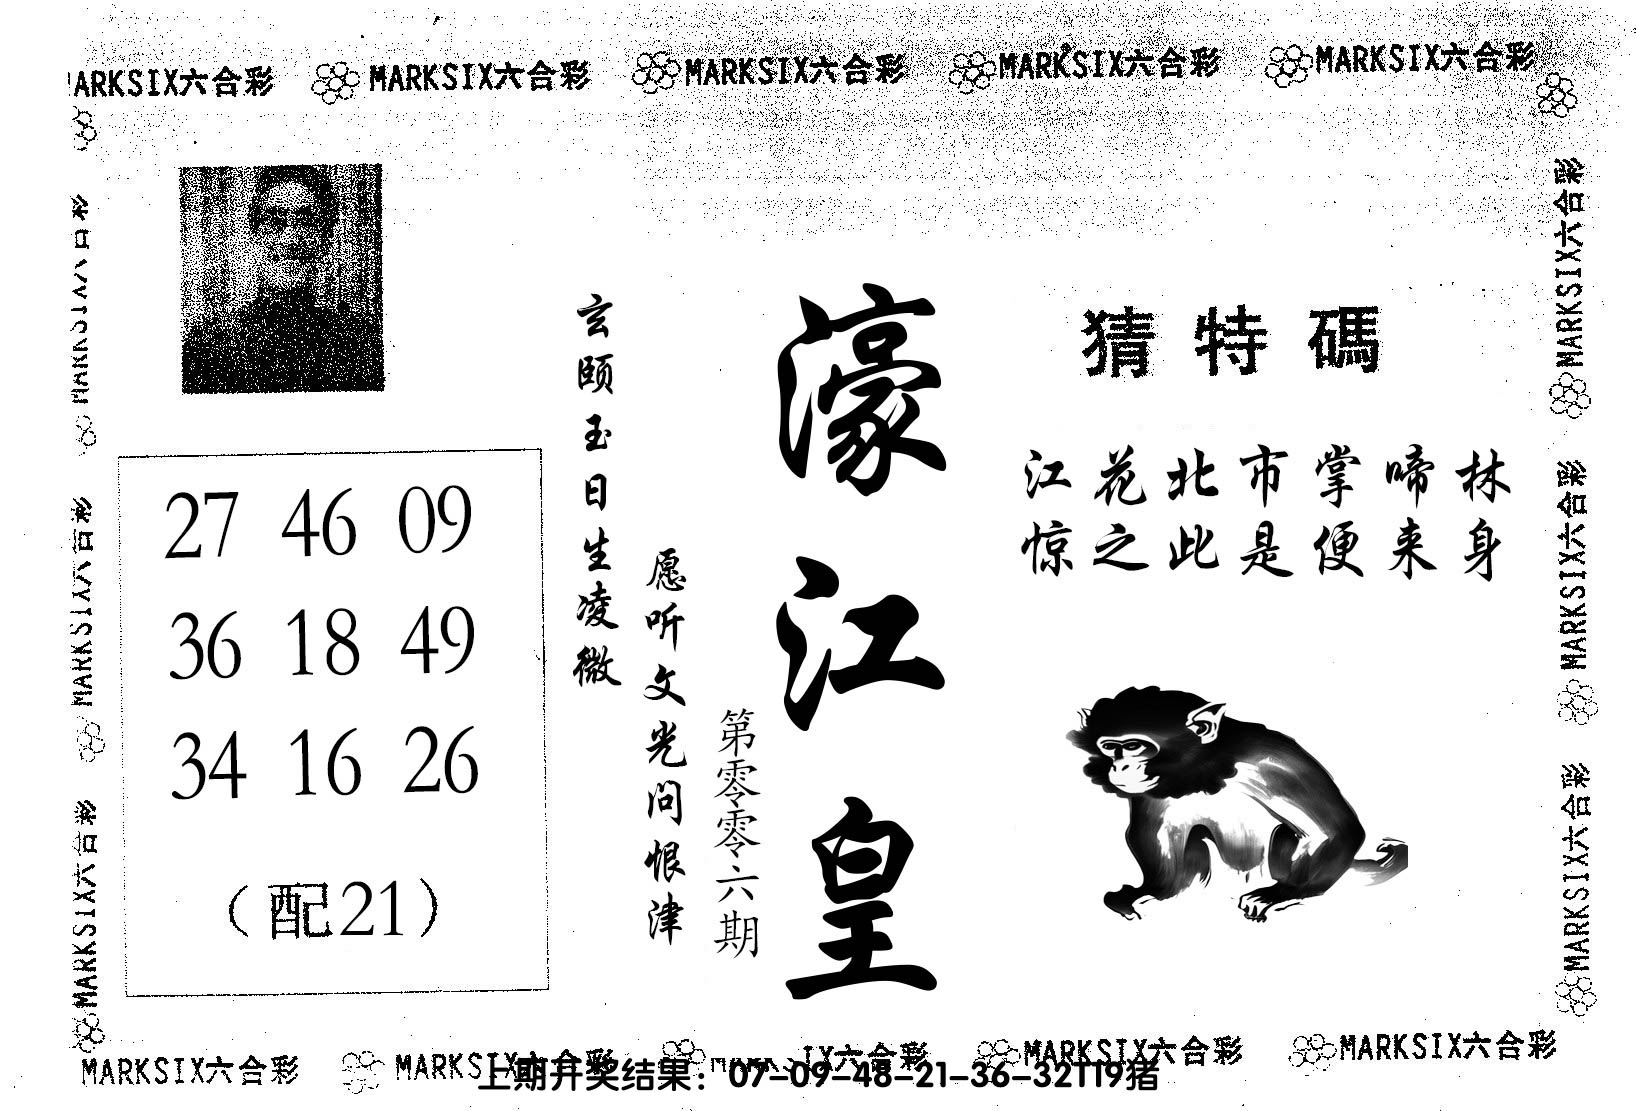 MARKSIX六合彩 MARKSIX六合彩 MARKSIX六合彩 MARKSIX六合彩 MARKSIX六合彩
猜特碼
江花北市掌啼林
惊之此是便来身
濠江皇
第零零六期
玄颐玉日生凌微
愿听文光问恨津
27 46 09
36 18 49
34 16 26
（配21）
MARKSIX六合彩
MARKSIX六合彩
MARKSIX六合彩
MARKSIX六合彩
MARKSIX六合彩
MARKSIX六合彩
MARKSIX六合彩 MARKSIX六合彩 MARKSIX六合彩 MARKSIX六合彩
上期开奖结果：07-09-48-21-36-32T19猪